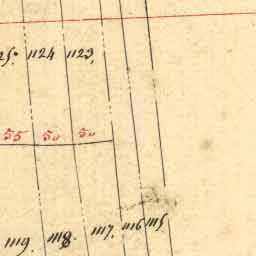 1124 1123.
55 50 50
1119. 1118. 1117. 1116 1115